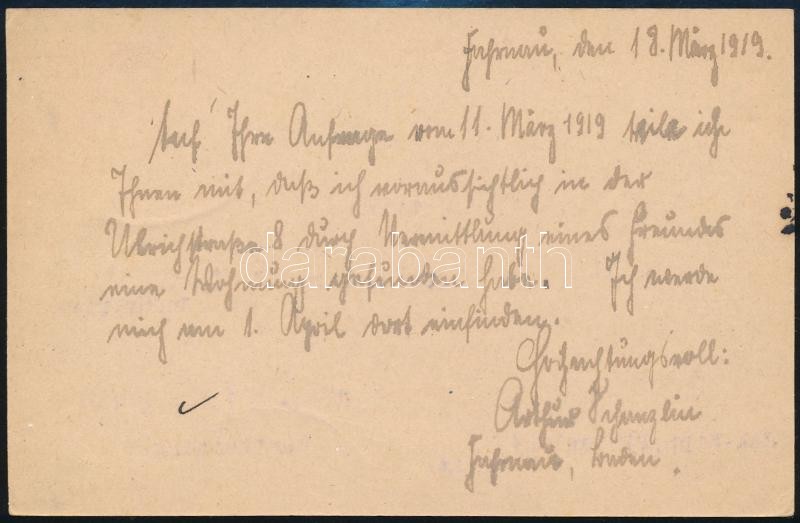 Fahrnau, den 18. März 1919.
Auf Ihre Anfrage vom 11. März 1919 teile ich
Ihnen mit, daß ich voraussichtlich in der
Ulrichstraße 8 durch Vermittlung eines Freundes
eine Wohnung gefunden habe. Ich werde
mich am 1. April dort einfinden.
Hochachtungsvoll:
Arthur Schanzlin
Fahrnau, Baden.
darabanth